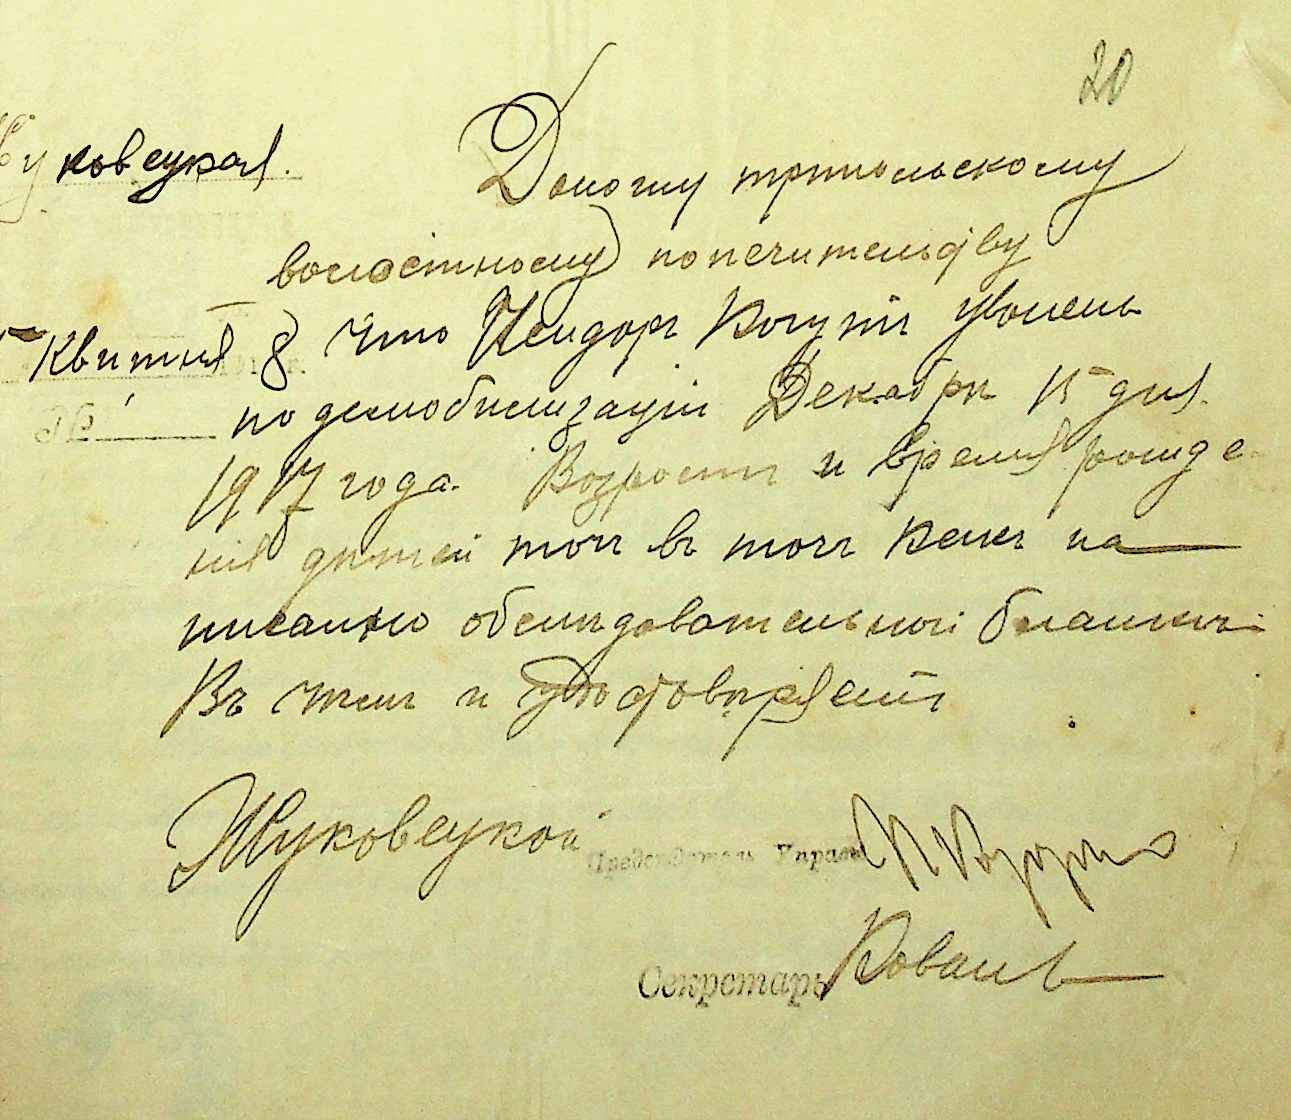 20
Жуковецкая.
Доношу трипольскому
волостному попечительству
Квитня 8 что Исидоръ Когутъ уволенъ
по демобилизаціи Декабря 15 дня.
1917 года. Возростъ и время рожде-
нія дѣтей точ въ точъ какъ на
писанно обслѣдовательной бланкѣ.
Въ чемъ и удостовѣряетъ
Жуковецкой
Председатель Управы
Секретарь Коваль